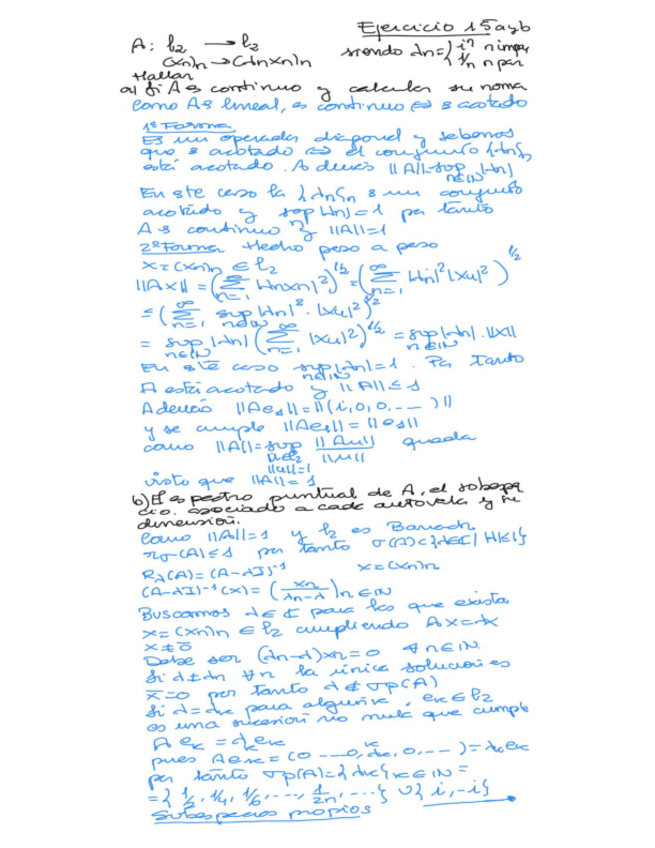 Ejercicio 15 a y b
A: l₂ → l₂
(xn)n → (λn xn)n siendo λn = { iⁿ n impar
1/n n par
Hallar
a) Si A es continuo y calcular su norma
Como A es lineal, es continuo ⇔ es acotado
1ª Forma
Es un operador diagonal y sabemos
que es acotado ⇔ el conjunto {λn}n
está acotado. Además ||A|| = sup |λn|
n∈ℕ
En este caso la {λn}n es un conjunto
acotado y sup|λn| = 1 por tanto
A es continuo y ||A||=1
2ª Forma Hecho paso a paso
x = (xn)n ∈ l₂
||Ax|| = (∑_{n=1}^∞ |λn xn|²)^{1/2} = (∑_{n=1}^∞ |λn|² |xn|²)^{1/2}
≤ (∑_{n=1}^∞ sup_{n∈ℕ} |λn|² · |xn|²)^{1/2}
= sup_{n∈ℕ} |λn| (∑_{n=1}^∞ |xn|²)^{1/2} = sup_{n∈ℕ} |λn| · ||x||
En este caso sup_{n∈ℕ} |λn| = 1. Por tanto
A está acotado y ||A|| ≤ 1
Además ||Ae₁|| = ||(i,0,0,---)||
y se cumple ||Ae₁|| = ||e₁||
como ||A|| = sup ||Au||/||u|| queda
u∈l₂
||u||=1
visto que ||A|| = 1
b) El espectro puntual de A, el subespa
cio asociado a cada autovalor y su
dimensión.
Como ||A||=1 y l₂ es Banach
rσ(A) ≤ 1 por tanto σ(A) ⊂ {λ∈ℂ / |λ|≤1}
Rλ(A) = (A-λI)⁻¹ x = (xn)n
(A-λI)⁻¹(x) = (xn/(λn-λ))n∈ℕ
Buscamos λ∈ℂ para los que exista
x = (xn)n ∈ l₂ cumpliendo Ax = λx
x ≠ 0
Debe ser (λn-λ)xn = 0 ∀n∈ℕ
Si λ≠λn ∀n la única solución es
x̄=0 por tanto λ ∉ σp(A)
Si λ=λk para algún k, ek∈l₂
es una sucesión no nula que cumple
A ek = λk ek
pues Aek = (0 ---- 0, λk, 0, ---) = λk ek
por tanto σp(A) = {λk}k∈ℕ =
= {1/2, 1/4, 1/6, ---, 1/2n, ---} ∪ {i, -i}
Subespacios propios